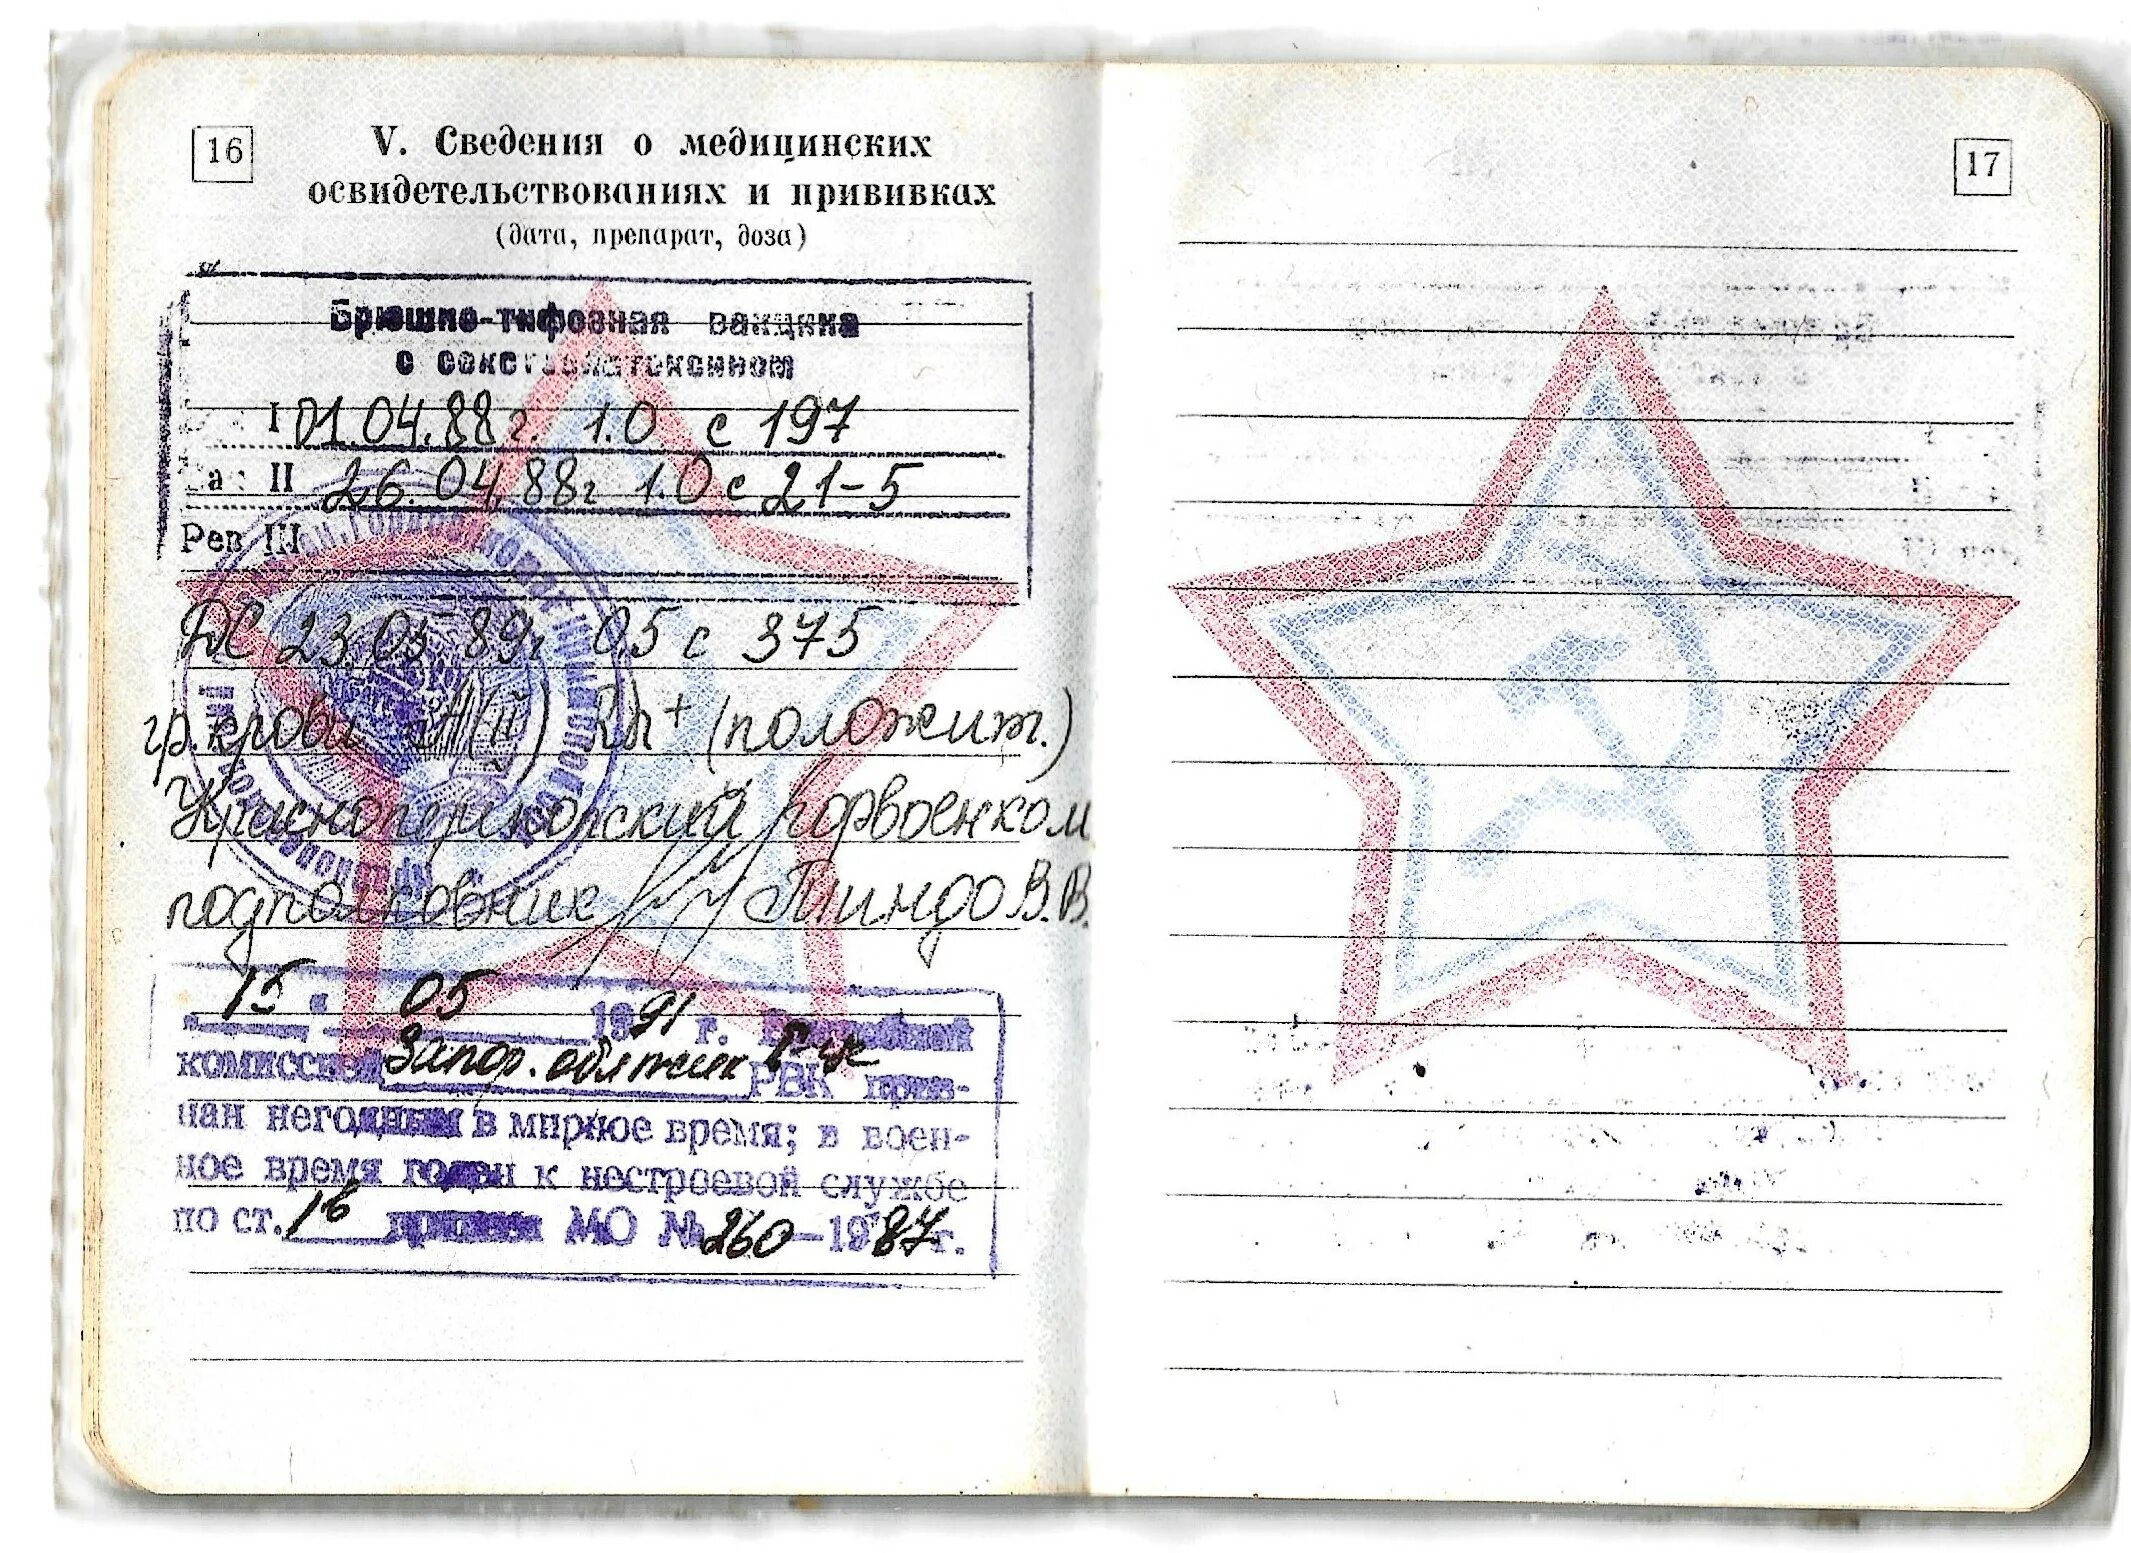 16
V. Сведения о медицинских
освидетельствованиях и прививках
(дата, препарат, доза)
Брюшно-тифозная вакцина
с секстанатоксином
I 01.04.88 г. 1.0 с 197
II 26.04.88 г 1.0 с 21-5
Рев III
23.05 89г 0.5 с 375
гр. крови А (II) Rh+ (положит.)
Красноперекопский горвоенком
подполковник В.В.
15 " 05 1991 г. Врачебной
комиссией Запор. обл РВК приз-
нан негодным в мирное время; в воен-
ное время годен к нестроевой службе
по ст. 1б приказа МО № 260-1987 г.
17